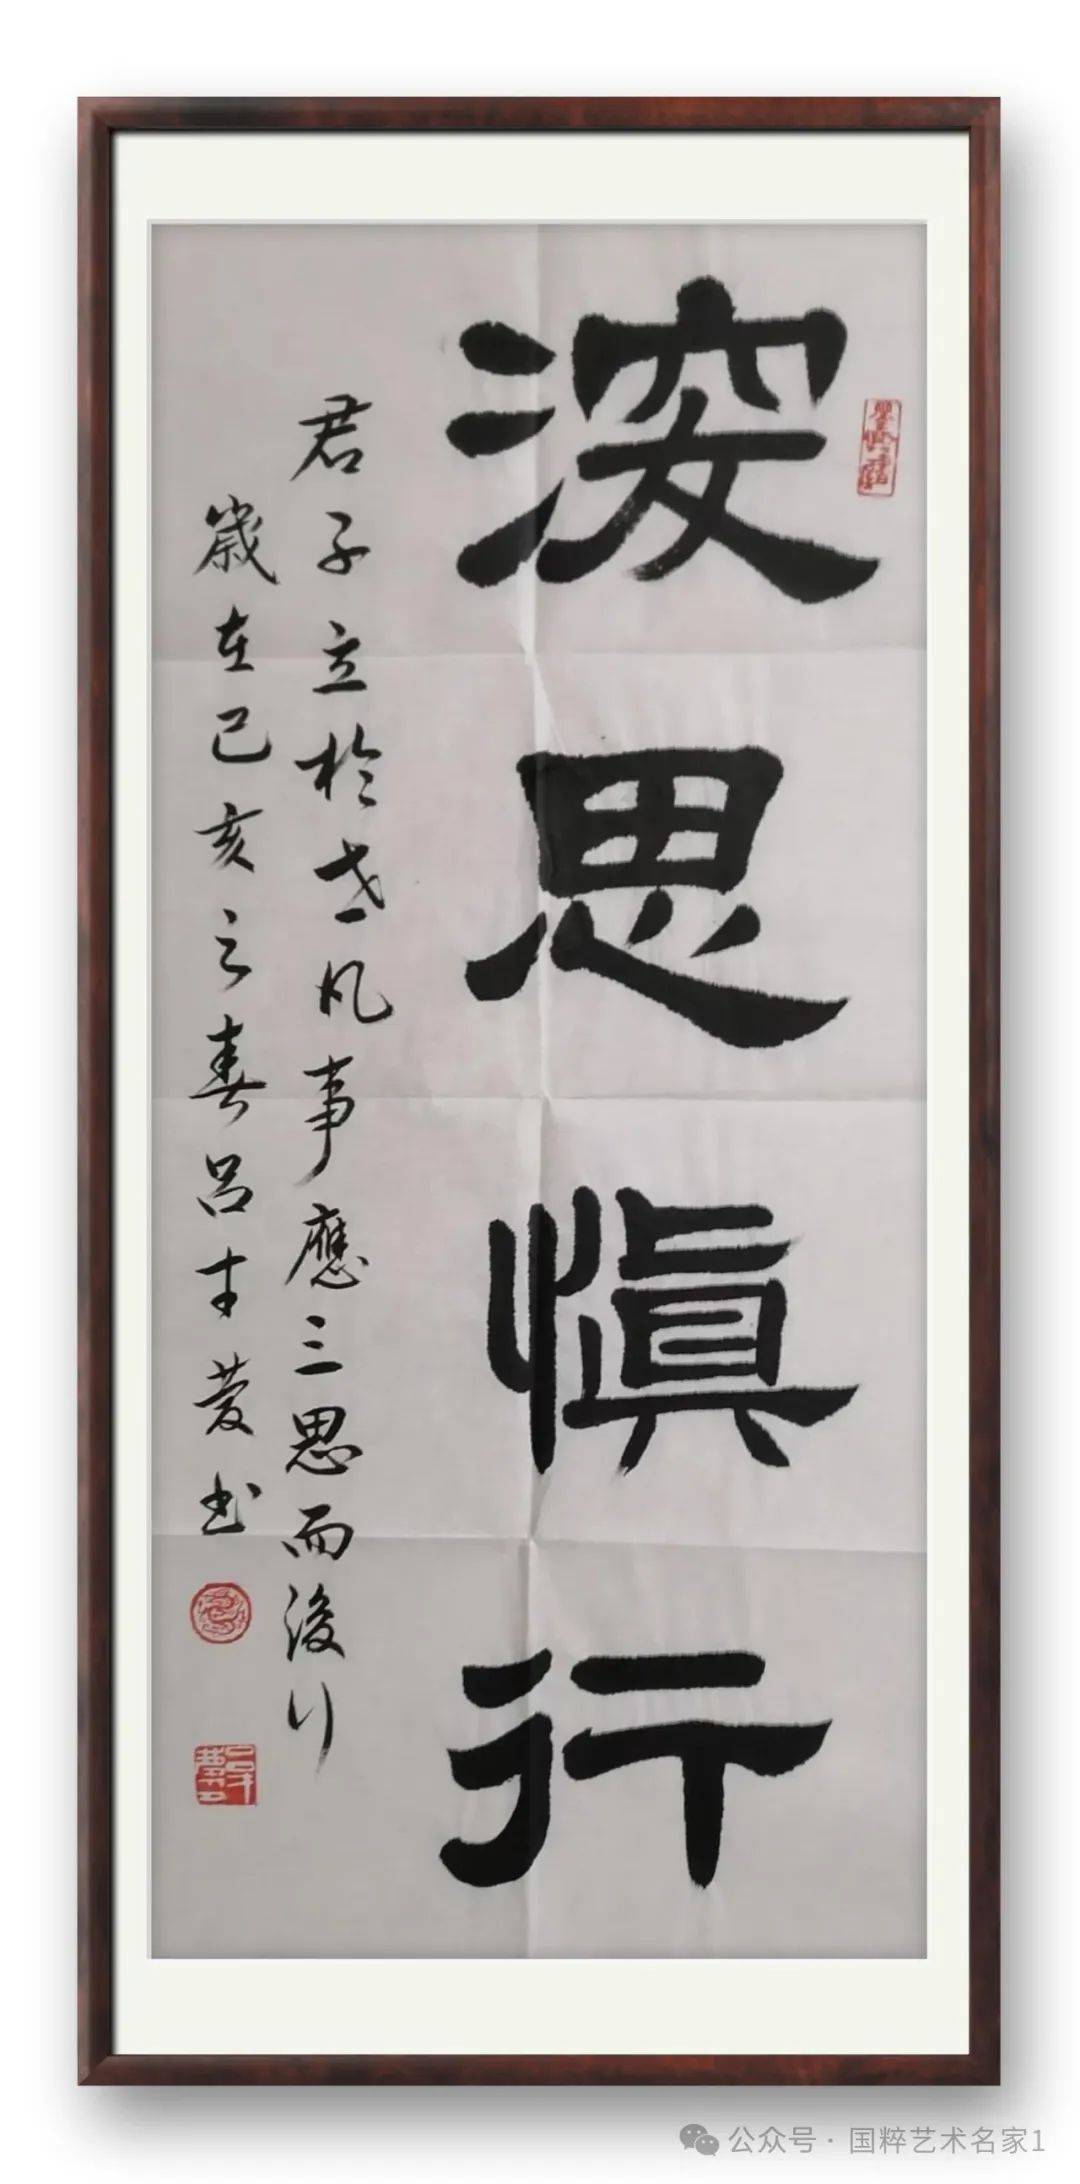 深思慎行
君子立於世凡事應三思而後行
歲在己亥之春呂才菱书
公众号·国粹艺术名家1